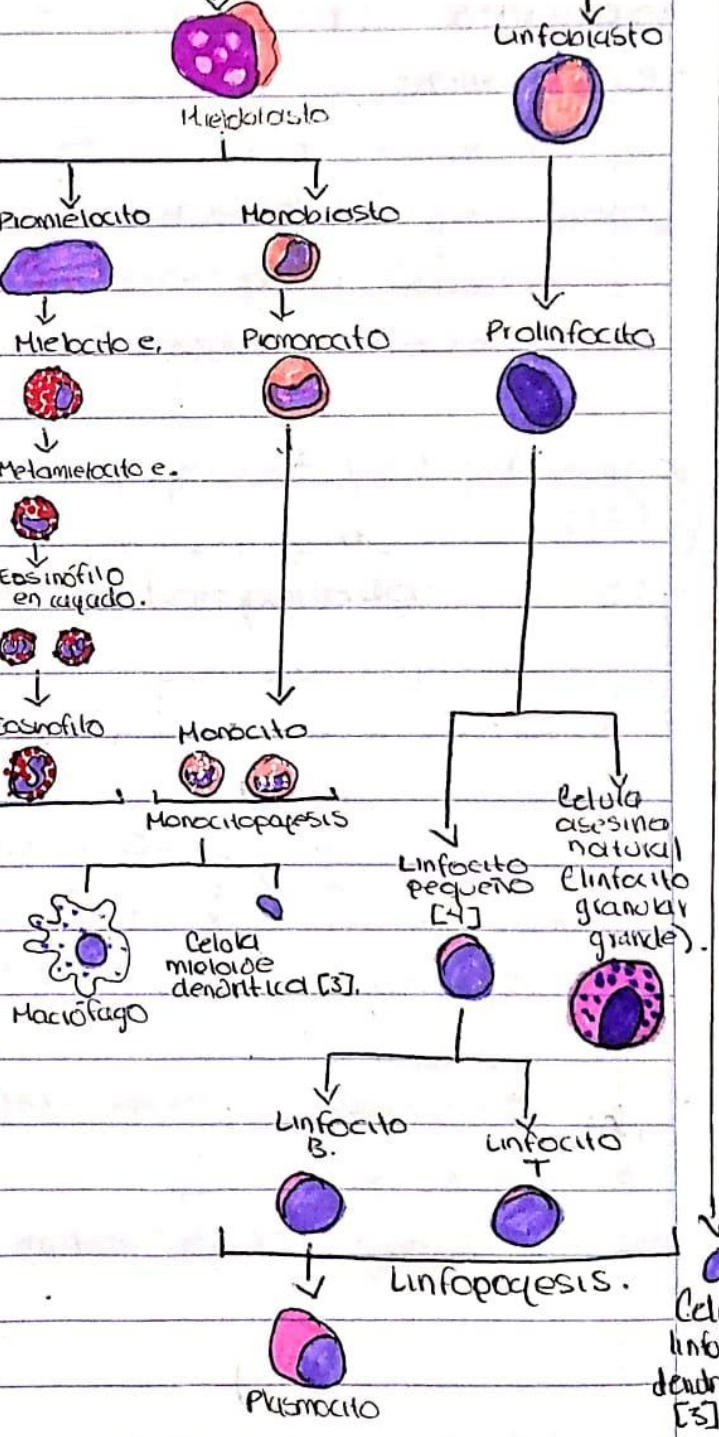 Linfoblasto
Mieloblasto
Promielocito
Monoblasto
Mielocito e,
Promonocito
Prolinfocito
Metamielocito e.
Eosinófilo
en cayado.
Eosinofilo
Monocito
Monocitopoyesis
Celula
asesina
natural
(linfocito
granular
grande).
Linfocito
pequeño
[4]
Celula
mieloide
dendritica [3].
Macrófago
Linfocito
B.
Linfocito
T
Linfopoyesis.
Plasmocito
Cel
linfo
dendr
[3]